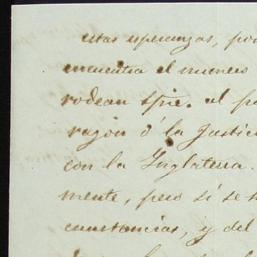 estas esperanzas, po
encuentra el numero
rodean spre. al p
razón ó la Justic
con la Inglaterra.
mente, pero si se
cunstancias, y del